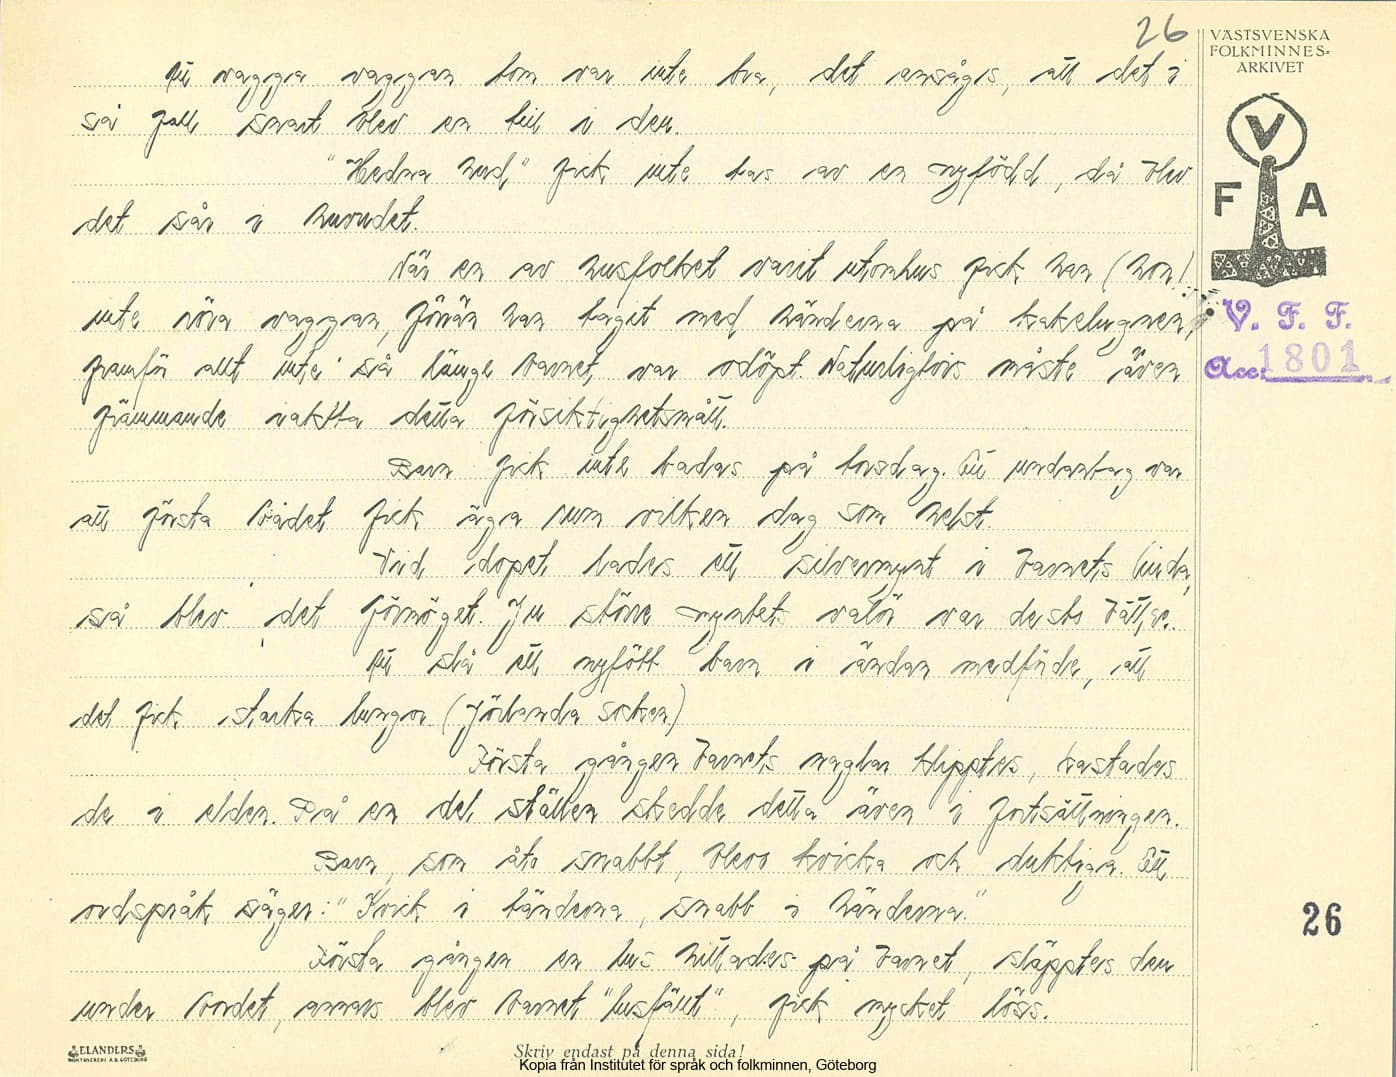 26
VÄSTSVENSKA
FOLKMINNES-
ARKIVET
V
F A
V. F. F.
Acc. 1801
Att vagga vaggan tom var inte bra, det ansågs, att det i
så fall snart blev en till i den.
"Hedna hud" fick inte tas av en nyfödd, då blev
det sår i huvudet.
När en av husfolket varit utomhus fick han (hon)
inte röra vaggan, förrän han tagit med händerna på kakelugnen,
framför allt inte så länge barnet var odöpt. Naturligtvis måste även
främmande iaktta detta försiktighetsmått.
Barn fick inte badas på torsdag. Ett undantag var
att första badet fick äga rum vilken dag som helst.
Vid dopet lades ett silvermynt i barnets linda,
så blev det förmöget. Ju större myntets valör var desto bättre.
Att slå ett nyfött barn i ändan medförde, att
det fick starka lungor (Jörlanda socken)
Första gången barnets naglar klipptes, kastades
de i elden. På en del ställen skedde detta även i fortsättningen.
Barn, som åto snabbt, blevo kvicka och duktiga. Ett
ordspråk säger: "Kvick i tänderna, snabb i händerna."
Första gången en lus hittades på barnet, släpptes den
under bordet, annars blev barnet "lusfällt", fick mycket löss.
26
ELANDERS
Skriv endast på denna sida!
Kopia från Institutet för språk och folkminnen, Göteborg